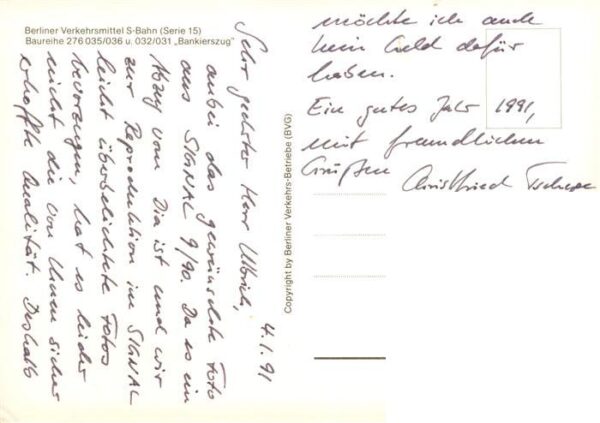 Berliner Verkehrsmittel S-Bahn (Serie 15)
Baureihe 276 035/036 u. 032/031 „Bankierszug"
Copyright by Berliner Verkehrs-Betriebe (BVG)
4.1.91
Sehr geehrter Herr Ulbrich,
anbei das gewünschte Foto
aus SIGNAL 9/90. Da es ein
Abzug vom Dia ist und wir
zur Reproduktion im SIGNAL
leicht überbelichtete Fotos
bevorzugen, hat es leider
nicht die von Ihnen sicher
erhoffte Qualität. Deshalb
möchte ich auch
kein Geld dafür
haben.
Ein gutes Jahr 1991,
mit freundlichen
Grüßen Christfried